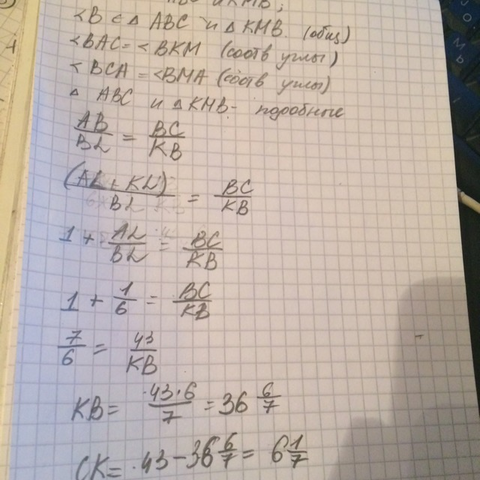 ∠B ∈ Δ ABC и Δ KMB (общ)
∠BAC = ∠BKM (соотв углы)
∠BCA = ∠BMA (соотв углы)
Δ ABC и Δ KMB - подобные
AB/BL = BC/KB
(AL + KL)/BL = BC/KB
1 + AL/BL = BC/KB
1 + 1/6 = BC/KB
7/6 = 43/KB
KB = 43·6/7 = 36 6/7
CK = 43 - 36 6/7 = 6 1/7